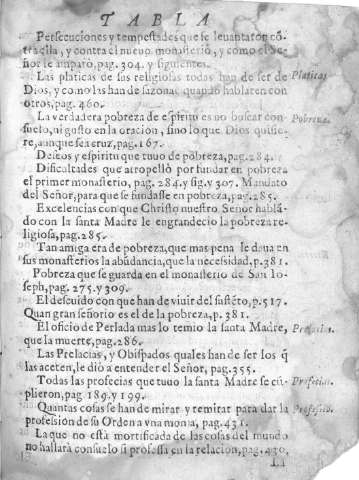 TABLA
Persecuciones y tempestades que se leuantaron cõ-
tra ella, y contra el nueuo monasterio, y como el Se-
ñor le amparò, pag. 304. y siguientes.
Las platicas de sus religiosas todas han de ser de Platicas
Dios, y como las han de sazonar quando hablaren con
otros, pag. 460.
La verdadera pobreza de espiritu es no buscar con- Pobreza.
suelo, ni gusto en la oracion, sino lo que Dios quisie-
re, aunque sea cruz, pag. 167.
Deseos y espiritu que tuuo de pobreza, pag. 284.
Dificultades que atropellò por fundar en pobreza
el primer monasterio, pag. 284. y sig. y 307. Mandato
del Señor, para que se fundasse en pobreza, pag. 285.
Excelencias con que Christo nuestro Señor hablã-
do con la santa Madre le engrandecio la pobreza re-
ligiosa, pag. 285.
Tan amiga era de pobreza, que mas pena le daua en
sus monasterios la abũdancia, que la necessidad. p. 381.
Pobreza que se guarda en el monasterio de San Io-
seph, pag. 275. y 309.
El descuido con que han de viuir del sustẽto, p. 517.
Quan gran señorio es el de la pobreza, p. 381.
El oficio de Perlada mas lo temio la santa Madre,
que la muerte, pag. 286.
Las Prelacias, y Obispados quales han de ser los q̃
las aceten, le diò a entender el Señor, pag. 355.
Todas las profecias que tuuo la santa Madre se cũ-
plieron, pag. 189. y 199.
Quantas cosas se han de mirar y remirar para dar la
profession de su Orden a vna monja, pag. 431.
La que no està mortificada de las cosas del mundo
no hallarà consuelo si professa en la relacion, pag. 430.